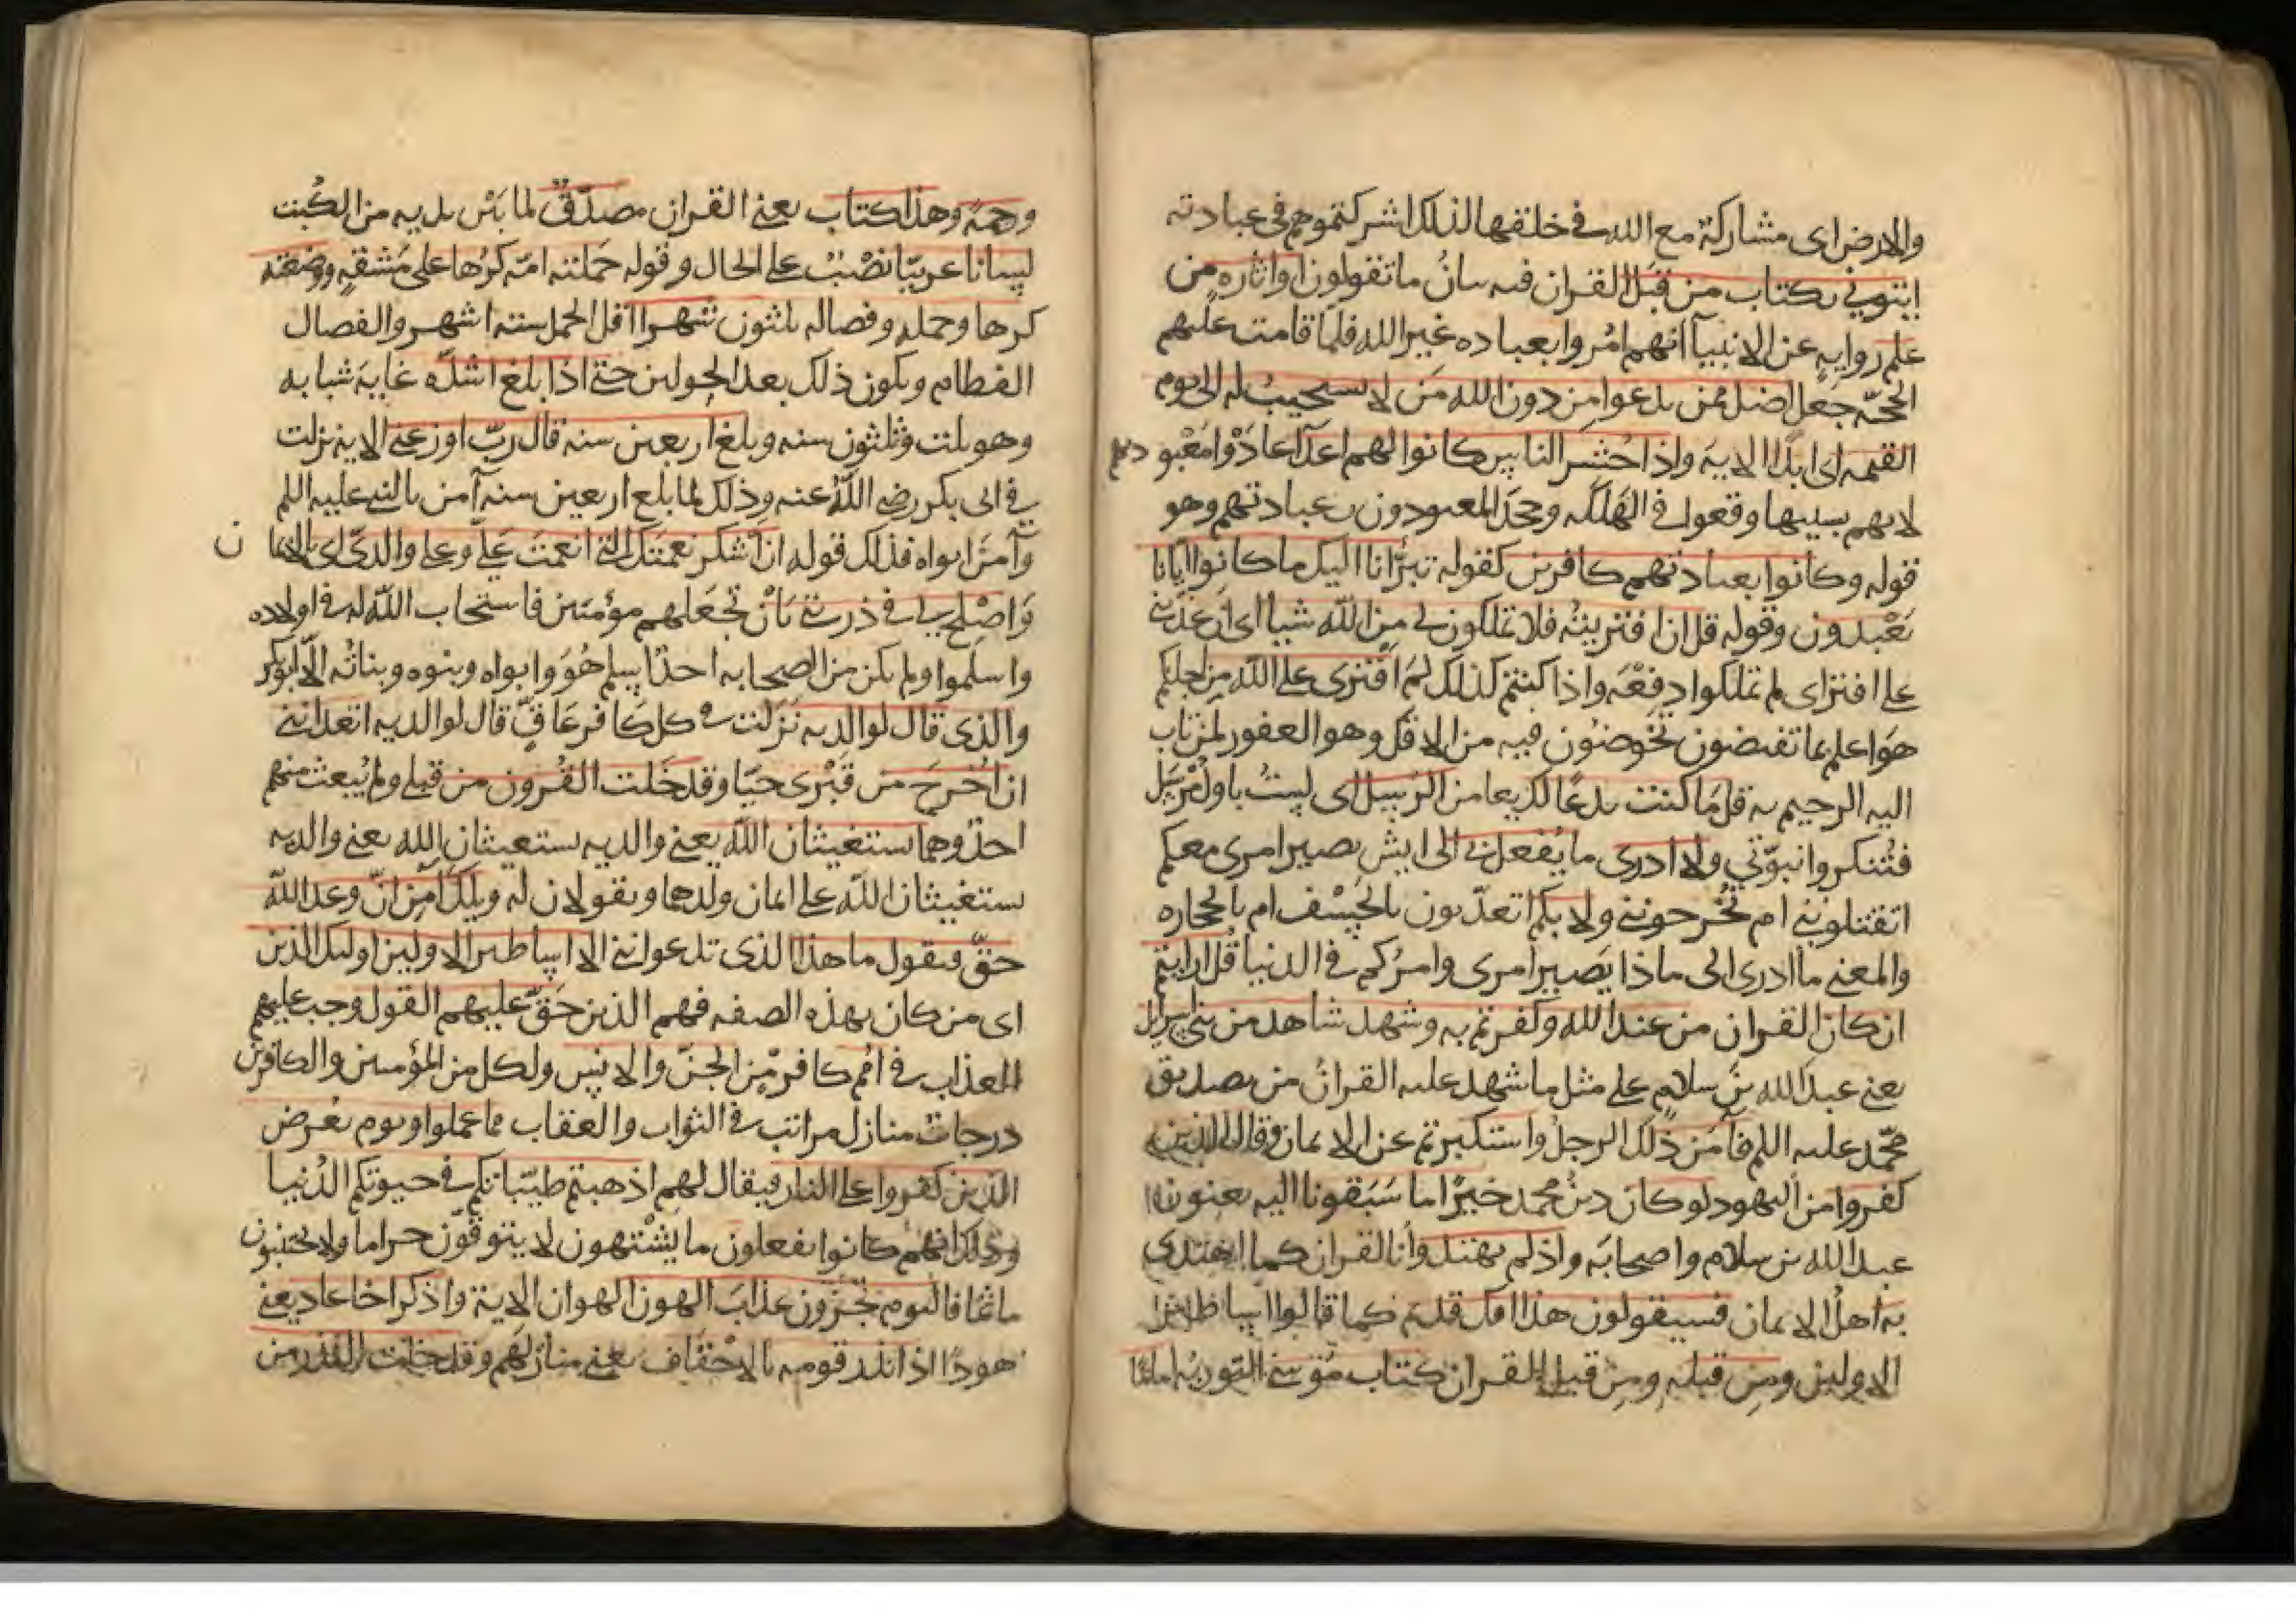 والارض اى مشاركة مع الله في خلقها لذلك اشركتموهم فى عبادته
ايتوني بكتاب من قبل القران فيه بيان ما تقولون او اثاره من
علم روايه عن الانبيآ انهم امروا بعباده غير الله فلما قامت عليهم
الحجه جعل اضل ممن يدعوا من دون الله من لا يستجيب له الى يوم
القيمه اى ابدا الاية واذا حشر الناس كانوا لهم اعدآ عادوا معبوديهم
لانهم بسببها وقعوا في الهلكه وجحد المعبودون عبادتهم وهو
قوله وكانوا بعبادتهم كافرين كقوله تبرأنا اليك ما كانوا ايانا
يعبدون وقوله قل ان افتريته فلا تملكون لي من الله شيا اى ان عذبني
على افتراى لم تملكوا دفعه واذا كنتم كذلك لم افترى على الله من اجلكم
هو اعلم بما تفيضون تخوضون فيه من الافك وهو الغفور لمن تاب
اليه الرحيم به قل ما كنت بدعا بديعا من الرسل اى لست باول مرسل
فتنكروا نبوتي ولا ادرى ما يفعل بي الى ايش يصير امرى معكم
اتقتلونني ام تخرجونني ولا بكم اتعذبون بالخسف ام بالحجاره
والمعنى ما ادرى الى ماذا يصير امرى وامركم في الدنيا قل ارايتم
ان كان القران من عند الله وكفرتم به وشهد شاهد من بني اسرايل
يعني عبد الله بن سلام على مثل ما شهد عليه القران من تصديق
محمد عليه السلم فآمن ذلك الرجل واستكبرتم عن الايمان وقال الذين
كفروا من اليهود لو كان دين محمد خيرا ما سبقونا اليه يعنون
عبد الله بن سلام واصحابه واذ لم يهتدوا بالقران كما اهتدى
به اهل الايمان فسيقولون هذا افك قديم كما قالوا اساطير
الاولين ومن قبله ومن قبل القران كتاب موسى التورية اماما
ورحمة وهذا كتاب يعنى القران مصدق لما بين يديه من الكتب
لسانا عربيا نصب على الحال وقوله حملته امه كرها على مشقه ووضعته
كرها وحمله وفصاله ثلثون شهرا اقل الحمل سته اشهر والفصال
الفطام ويكون ذلك بعد الحولين حتى اذا بلغ اشده غاية شبابه
وهو ثلث وثلثون سنه وبلغ اربعين سنه قال رب اوزعني الاية نزلت
في ابى بكر رضى الله عنه وذلك لما بلغ اربعين سنه آمن بالنبي عليه السلم
وآمن ابواه فذلك قوله ان اشكر نعمتك التي انعمت علي وعلى والدي اى بالايمان
واصلح لي في ذريتي بان تجعلهم مؤمنين فاستجاب الله له في اولاده
واسلموا ولم يكن من الصحابه احد اسلم هو وابواه وبنوه وبناته الا ابو بكر
والذى قال لوالديه نزلت في كل كافر عاق قال لوالديه اتعدانني
ان اخرج من قبرى حيا وقد خلت القرون من قبلي ولم يبعث منهم
احد وهما يستغيثان الله يعني والديه يستغيثان الله يعني والديه
يستغيثان الله على ايمان ولدهما ويقولان له ويلك آمن ان وعد الله
حق فيقول ما هذا الذى تدعوانني الا اساطير الاولين اوليك الذين
اى من كان بهذه الصفه فهم الذين حق عليهم القول وجب عليهم
العذاب في امم كافر من الجن والانس ولكل من المؤمنين والكافرين
درجات منازل مراتب في الثواب والعقاب مما عملوا ويوم يعرض
الذين كفروا على النار فيقال لهم اذهبتم طيباتكم في حيوتكم الدنيا
وذلك انهم كانوا يفعلون ما يشتهون لا يتوقون حراما ولا يجتنبون
ماثما فاليوم تجزون عذاب الهون الهوان الاية واذكر اخا عاد يعني
هودا اذ انذر قومه بالاحقاف يعني منازلهم وقد خلت النذر من